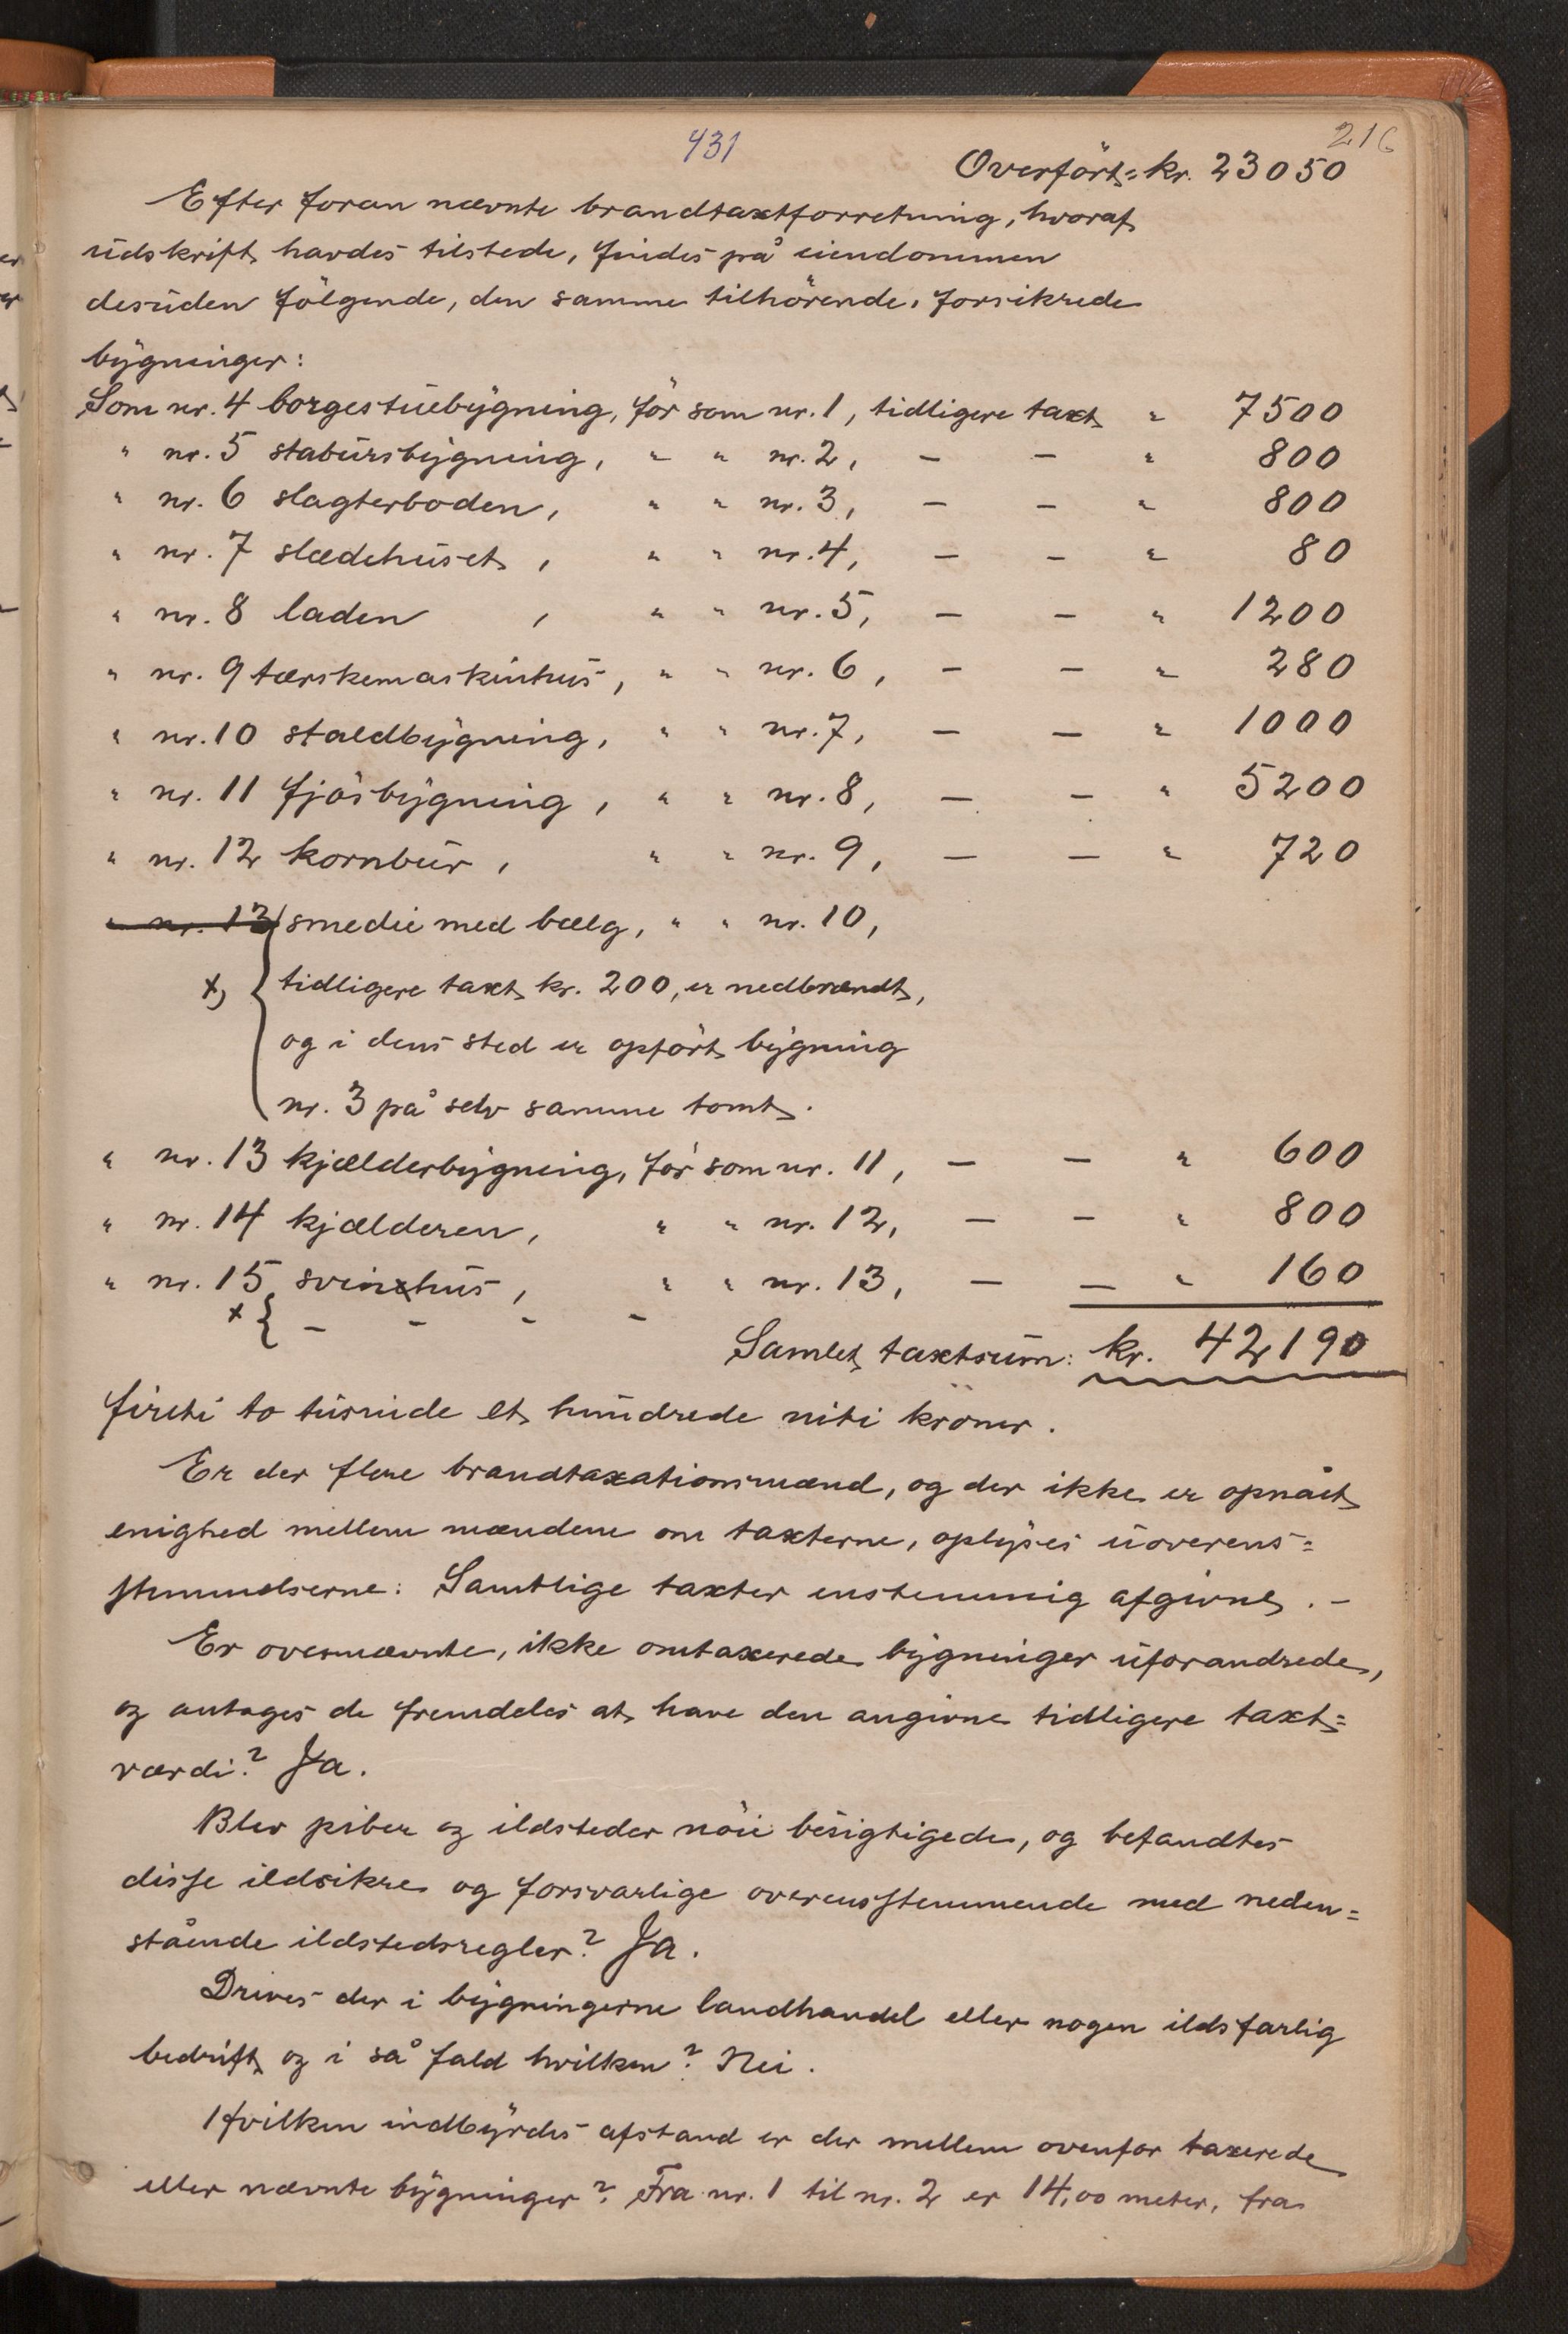 431
216
Overført: kr. 23050
Efter foran nævnte brandtaxtforretning, hvoraf
udskrift havdes tilstede, findes på eiendommen
desuden følgende, den samme tilhørende, forsikrede
bygninger:
Som nr. 4 borgestuebygning, før som nr. 1, tidligere taxt " 7500
" nr. 5 stabursbygning, " " nr. 2, — — " 800
" nr. 6 slagterboden, " " nr. 3, — — " 800
" nr. 7 slædehuset, " " nr. 4, — — " 80
" nr. 8 laden, " " nr. 5, — — " 1200
" nr. 9 tærskemaskinhus, " " nr. 6, — — " 280
" nr. 10 staldbygning, " " nr. 7, — — " 1000
" nr. 11 fjøsbygning, " " nr. 8, — — " 5200
" nr. 12 kornbur, " " nr. 9, — — " 720
" nr. 13 smedie med bælg, " " nr. 10,
x) tidligere taxt kr. 200, er nedbrændt,
og i dens sted er opført bygning
nr. 3 på selv samme tomt.
" nr. 13 kjælderbygning, før som nr. 11, — — " 600
" nr. 14 kjælderen, " " nr. 12, — — " 800
" nr. 15 svinehus, " " nr. 13, — — " 160
x { — — — —
Samlet taxtsum: kr. 42190
firti to tusinde et hundrede niti kroner.
Er der flere brandtaxationsmænd, og der ikke er opnået
enighed mellem mændene om taxterne, oplyses uoverens=
stemmelserne: Samtlige taxter enstemmig afgivne. —
Er ovennævnte, ikke omtaxerede bygninger uforandrede,
og antages de fremdeles at have den angivne tidligere taxt=
værdi? Ja.
Blev piber og ildsteder nøie besigtigede, og befandtes
disse ildsikre og forsvarlige overensstemmende med neden=
stående ildstedsregler? Ja.
Drives der i bygningerne landhandel eller nogen ildsfarlig
bedrift og i så fald hvilken? Nei.
Hvilken indbyrdes afstand er der mellem ovenfor taxerede
eller nævnte bygninger? Fra nr. 1 til nr. 2 er 14,00 meter, fra